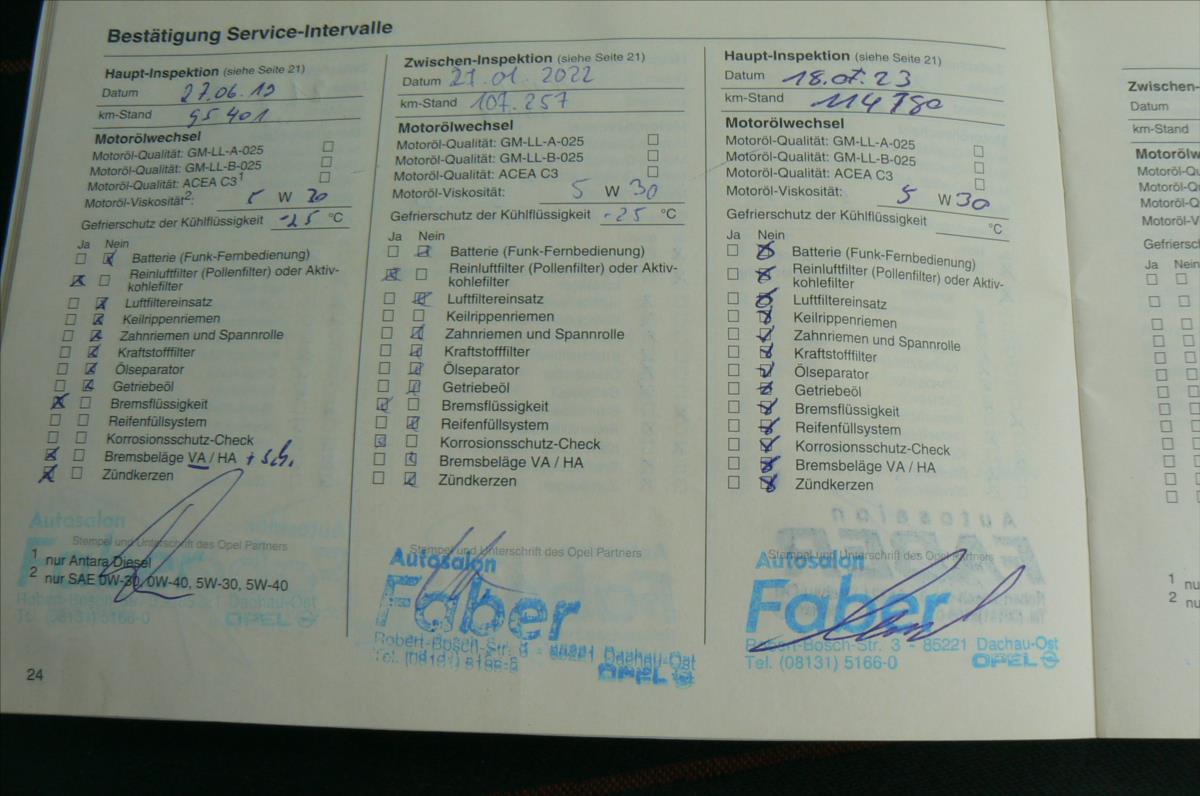 Bestätigung Service-Intervalle
Haupt-Inspektion (siehe Seite 21)
Datum 27.06.19
km-Stand 95401
Motorölwechsel
Motoröl-Qualität: GM-LL-A-025
Motoröl-Qualität: GM-LL-B-025
Motoröl-Qualität: ACEA C3¹
Motoröl-Viskosität²: 5 W 30
Gefrierschutz der Kühlflüssigkeit -25 °C
Ja Nein
Batterie (Funk-Fernbedienung)
Reinluftfilter (Pollenfilter) oder Aktiv-
kohlefilter
Luftfiltereinsatz
Keilrippenriemen
Zahnriemen und Spannrolle
Kraftstofffilter
Ölseparator
Getriebeöl
Bremsflüssigkeit
Reifenfüllsystem
Korrosionsschutz-Check
Bremsbeläge VA / HA + Sch.
Zündkerzen
Autosalon
Stempel und Unterschrift des Opel Partners
Faber
¹ nur Antara Diesel
² nur SAE 0W-30, 0W-40, 5W-30, 5W-40
Robert-Bosch-Str. 3 Dachau-Ost
Tel. (08131) 5166-0 OPEL
24
Zwischen-Inspektion (siehe Seite 21)
Datum 27.01.2022
km-Stand 107.257
Motorölwechsel
Motoröl-Qualität: GM-LL-A-025
Motoröl-Qualität: GM-LL-B-025
Motoröl-Qualität: ACEA C3
Motoröl-Viskosität: 5 W 30
Gefrierschutz der Kühlflüssigkeit -25 °C
Ja Nein
Batterie (Funk-Fernbedienung)
Reinluftfilter (Pollenfilter) oder Aktiv-
kohlefilter
Luftfiltereinsatz
Keilrippenriemen
Zahnriemen und Spannrolle
Kraftstofffilter
Ölseparator
Getriebeöl
Bremsflüssigkeit
Reifenfüllsystem
Korrosionsschutz-Check
Bremsbeläge VA / HA
Zündkerzen
Stempel und Unterschrift des Opel Partners
Autosalon
Faber
Robert-Bosch-Str. 3 - 85221 Dachau-Ost
Tel. (08131) 5166-0 OPEL
Haupt-Inspektion (siehe Seite 21)
Datum 18.07.23
km-Stand 114780
Motorölwechsel
Motoröl-Qualität: GM-LL-A-025
Motoröl-Qualität: GM-LL-B-025
Motoröl-Qualität: ACEA C3
Motoröl-Viskosität: 5 W 30
Gefrierschutz der Kühlflüssigkeit °C
Ja Nein
Batterie (Funk-Fernbedienung)
Reinluftfilter (Pollenfilter) oder Aktiv-
kohlefilter
Luftfiltereinsatz
Keilrippenriemen
Zahnriemen und Spannrolle
Kraftstofffilter
Ölseparator
Getriebeöl
Bremsflüssigkeit
Reifenfüllsystem
Korrosionsschutz-Check
Bremsbeläge VA / HA
Zündkerzen
Stempel und Unterschrift des Opel Partners
Autosalon
Faber
Robert-Bosch-Str. 3 - 85221 Dachau-Ost
Tel. (08131) 5166-0 OPEL
Zwischen-
Datum
km-Stand
Motorölw
Motoröl-Qu
Motoröl-Qu
Motoröl-Qu
Motoröl-V
Gefriersc
Ja Nein
¹ nu
² nu